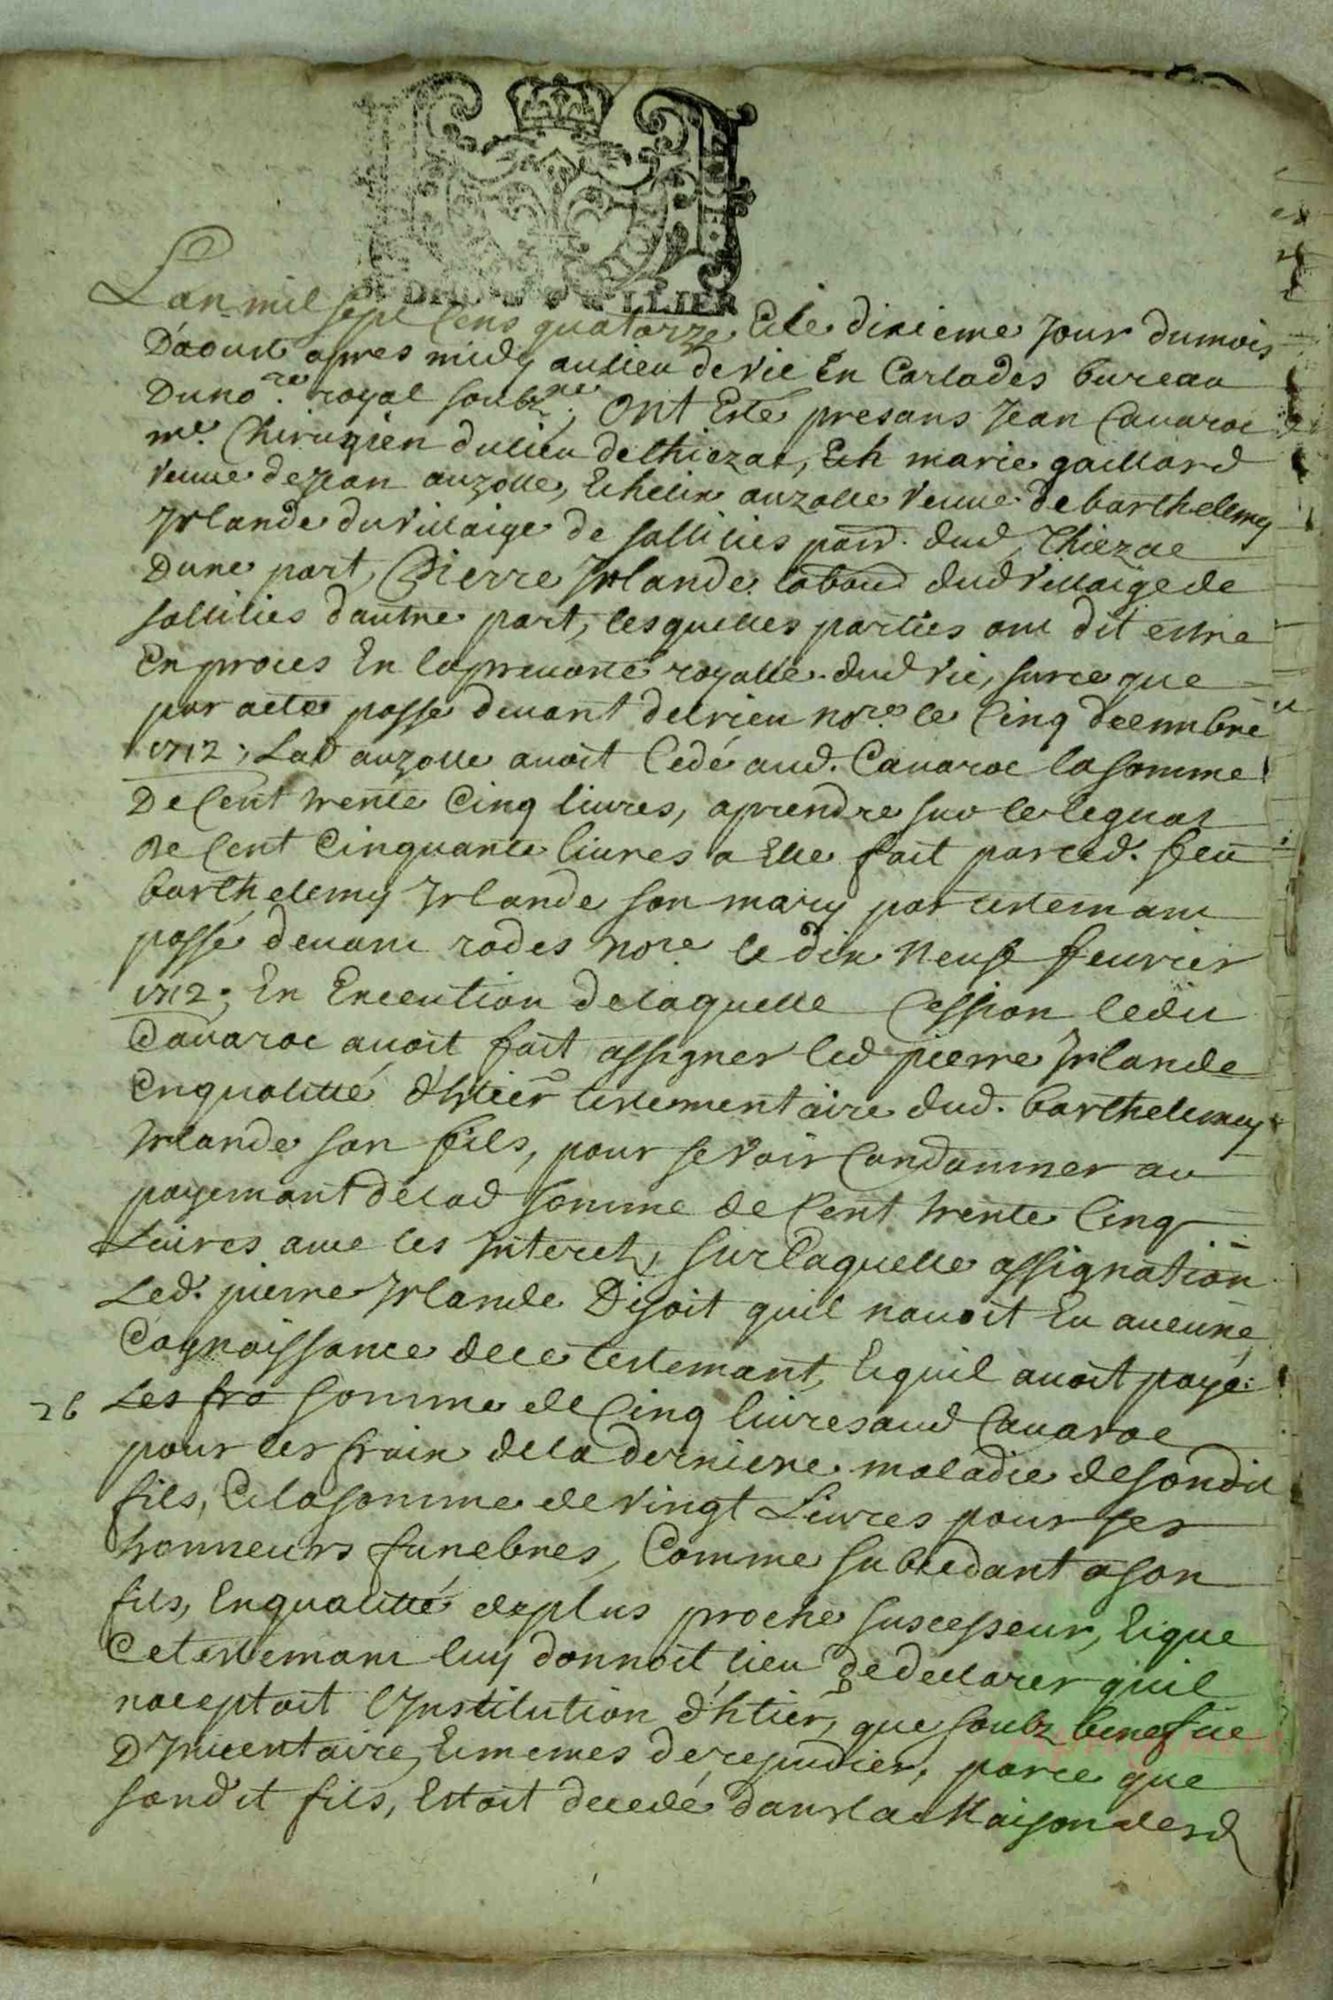 L'an mil sept cens quatorze Et le dixieme Jour du mois
D'aoust apres midy au lieu de vic En Carlades bureau
Du no.re royal soubz.ne, Ont Esté presans Jean Cavaroc
m.e Chirugien du lieu de thiezac, marie gaillard
veuve de Jean auzolle, Et helix auzolle veuve de barthelemy
Irlande du villaige de sallilies parr. dud Thiezac
Dune part, Pierre Irlande labour dud villaige de
sallilies dautre part, lesquelles parties ont dit estre
En proces En la prevoté royalle dud vic, surce que
par acte passé devant delrieu no.re le Cinq decembre
1712; Lad auzolle avoit Cedé aud. Cavaroc la somme
De Cent trente Cinq livres, a prendre sur le leguat
de Cent Cinquante livres a Elle fait par led. feu
barthelemy Irlande son mary par testemant
passé devant rodes no.re le dix neuf fevrier
1712; En Execution de laquelle Cession ledit
Cavaroc avoit fait assigner led pierre Irlande
En qualitté d'htier testementaire dud. barthelemy
Irlande son fils, pour se voir Condamner au
payemant de lad somme de Cent trente Cinq
Livres avec les Interets, sur laquelle assignation
Led. pierre Irlande Disoit quil navoit Eu aucune
Cognoissance de ce testemant, Et quil avoit payé
26 Les fra somme de Cinq livres aud Cavaroc
pour les frais de la derniere maladie de son dit
fils, Et la somme de vingt Livres pour ses
honneurs funebres, Comme succedant a son
fils, En qualitté de plus proche successeur, Et que
Ce testemant luy donnoit lieu De declarer quil
naceptoit l'Institution d'htier, que soubz benefice
D'Inventaire, Et memes de repudier, parce que
sondit fils, Estoit decedé dans la Maison desd